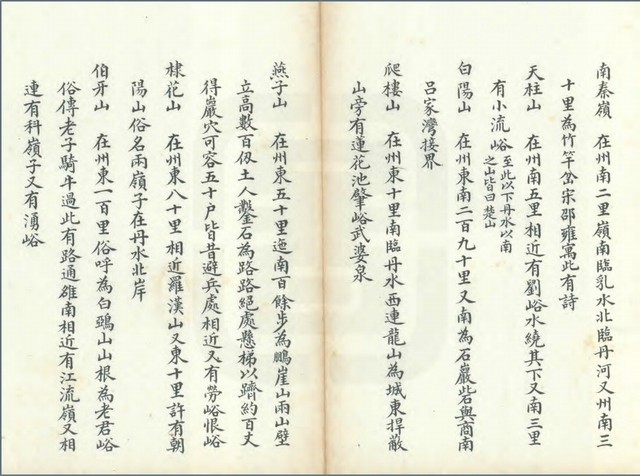 南秦嶺　在州南二里嶺南臨乳水北臨丹河又州南三
十里為竹竿岔宋邵雍寓此有詩
天柱山　在州南五里相近有劉峪水繞其下又南三里
有小流峪至此以下丹水以南之山皆曰楚山
白陽山　在州東南二百九十里又南為石巖砦與商南
呂家灣接界
爬樓山　在州東十里南臨丹水西連龍山為城東捍蔽
山旁有蓮花池肇峪武婆泉
燕子山　在州東五十里迤南百餘步為鵬崖山兩山壁
立高數百仞土人鑿石為路路絕處懸梯以躋約百丈
得巖穴可容五十戶皆昔避兵處相近又有勞峪恨峪
棣花山　在州東八十里相近羅漢山又東十里許有朝
陽山俗名兩嶺子在丹水北岸
伯牙山　在州東一百里俗呼為白鵶山山根為老君峪
俗傳老子騎牛過此有路通雒南相近有江流嶺又相
連有科嶺子又有湧峪